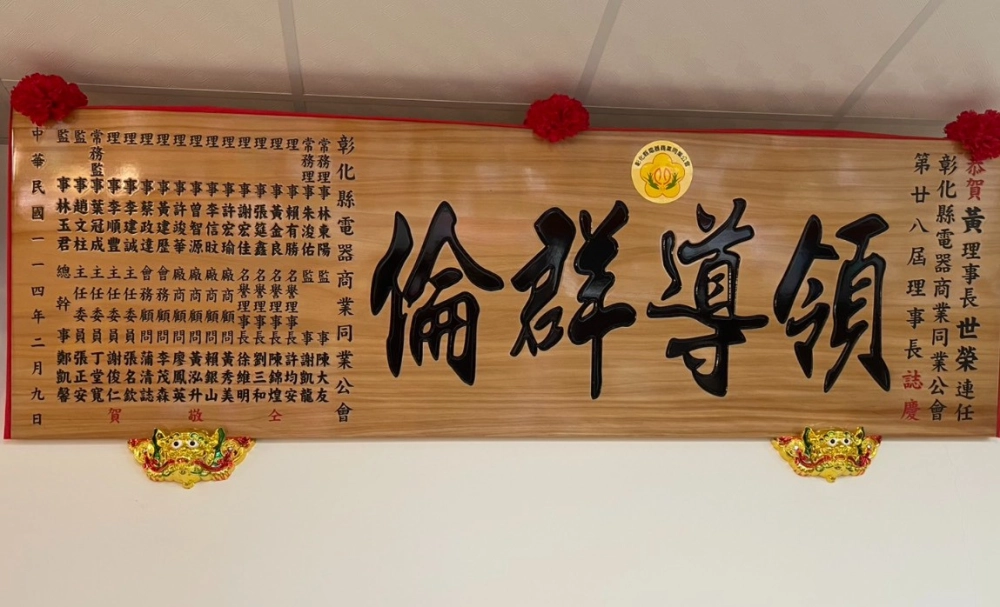 恭賀 黃理事長世榮連任
彰化縣電器商業同業公會
第廿八屆理事長 誌慶
領導群倫
彰化縣電器商業同業公會
常務理事林東陽 監事陳大友
常務理事朱浚佑 監事謝凱龍
理事賴有勝 名譽理事長許均安
理事黃金良 名譽理事長陳錦煌
理事張筵鑫 名譽理事長劉三和
理事謝宏佳 名譽理事長徐維明
理事許宏瑜 廠商顧問黃秀美
理事李信旼 廠商顧問賴銀山
理事曾智源 廠商顧問黃泓升
理事許竣華 廠商顧問廖鳳英
理事黃建歷 會務顧問李茂森
理事蔡政達 會務顧問蒲清誌
理事李建誠 主任委員張名欽
理事李順豐 主任委員謝俊仁
常務監事葉冠成 主任委員丁堂寬
監事趙文柱 主任委員張正安
監事林玉君 總幹事鄭凱馨
仝敬賀
中華民國一一四年二月九日